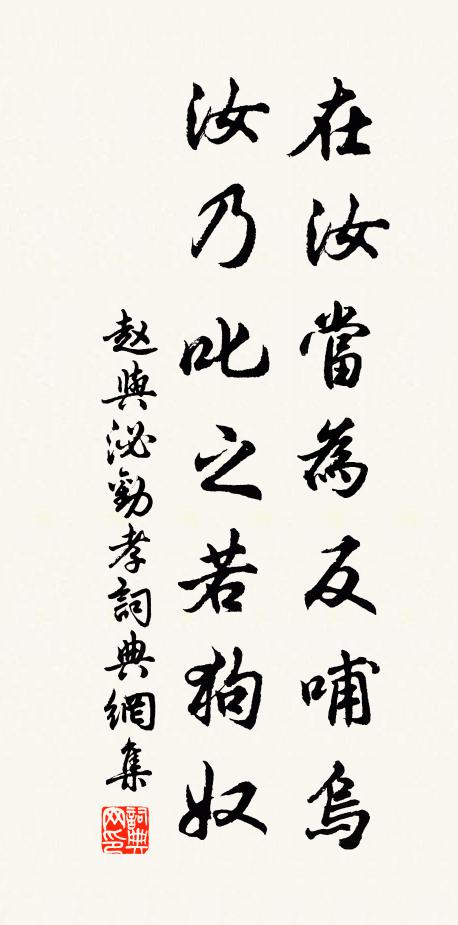 在汝當為反哺烏
汝乃叱之若狗奴
赵與泌勸孝詞典網集
詞典网印